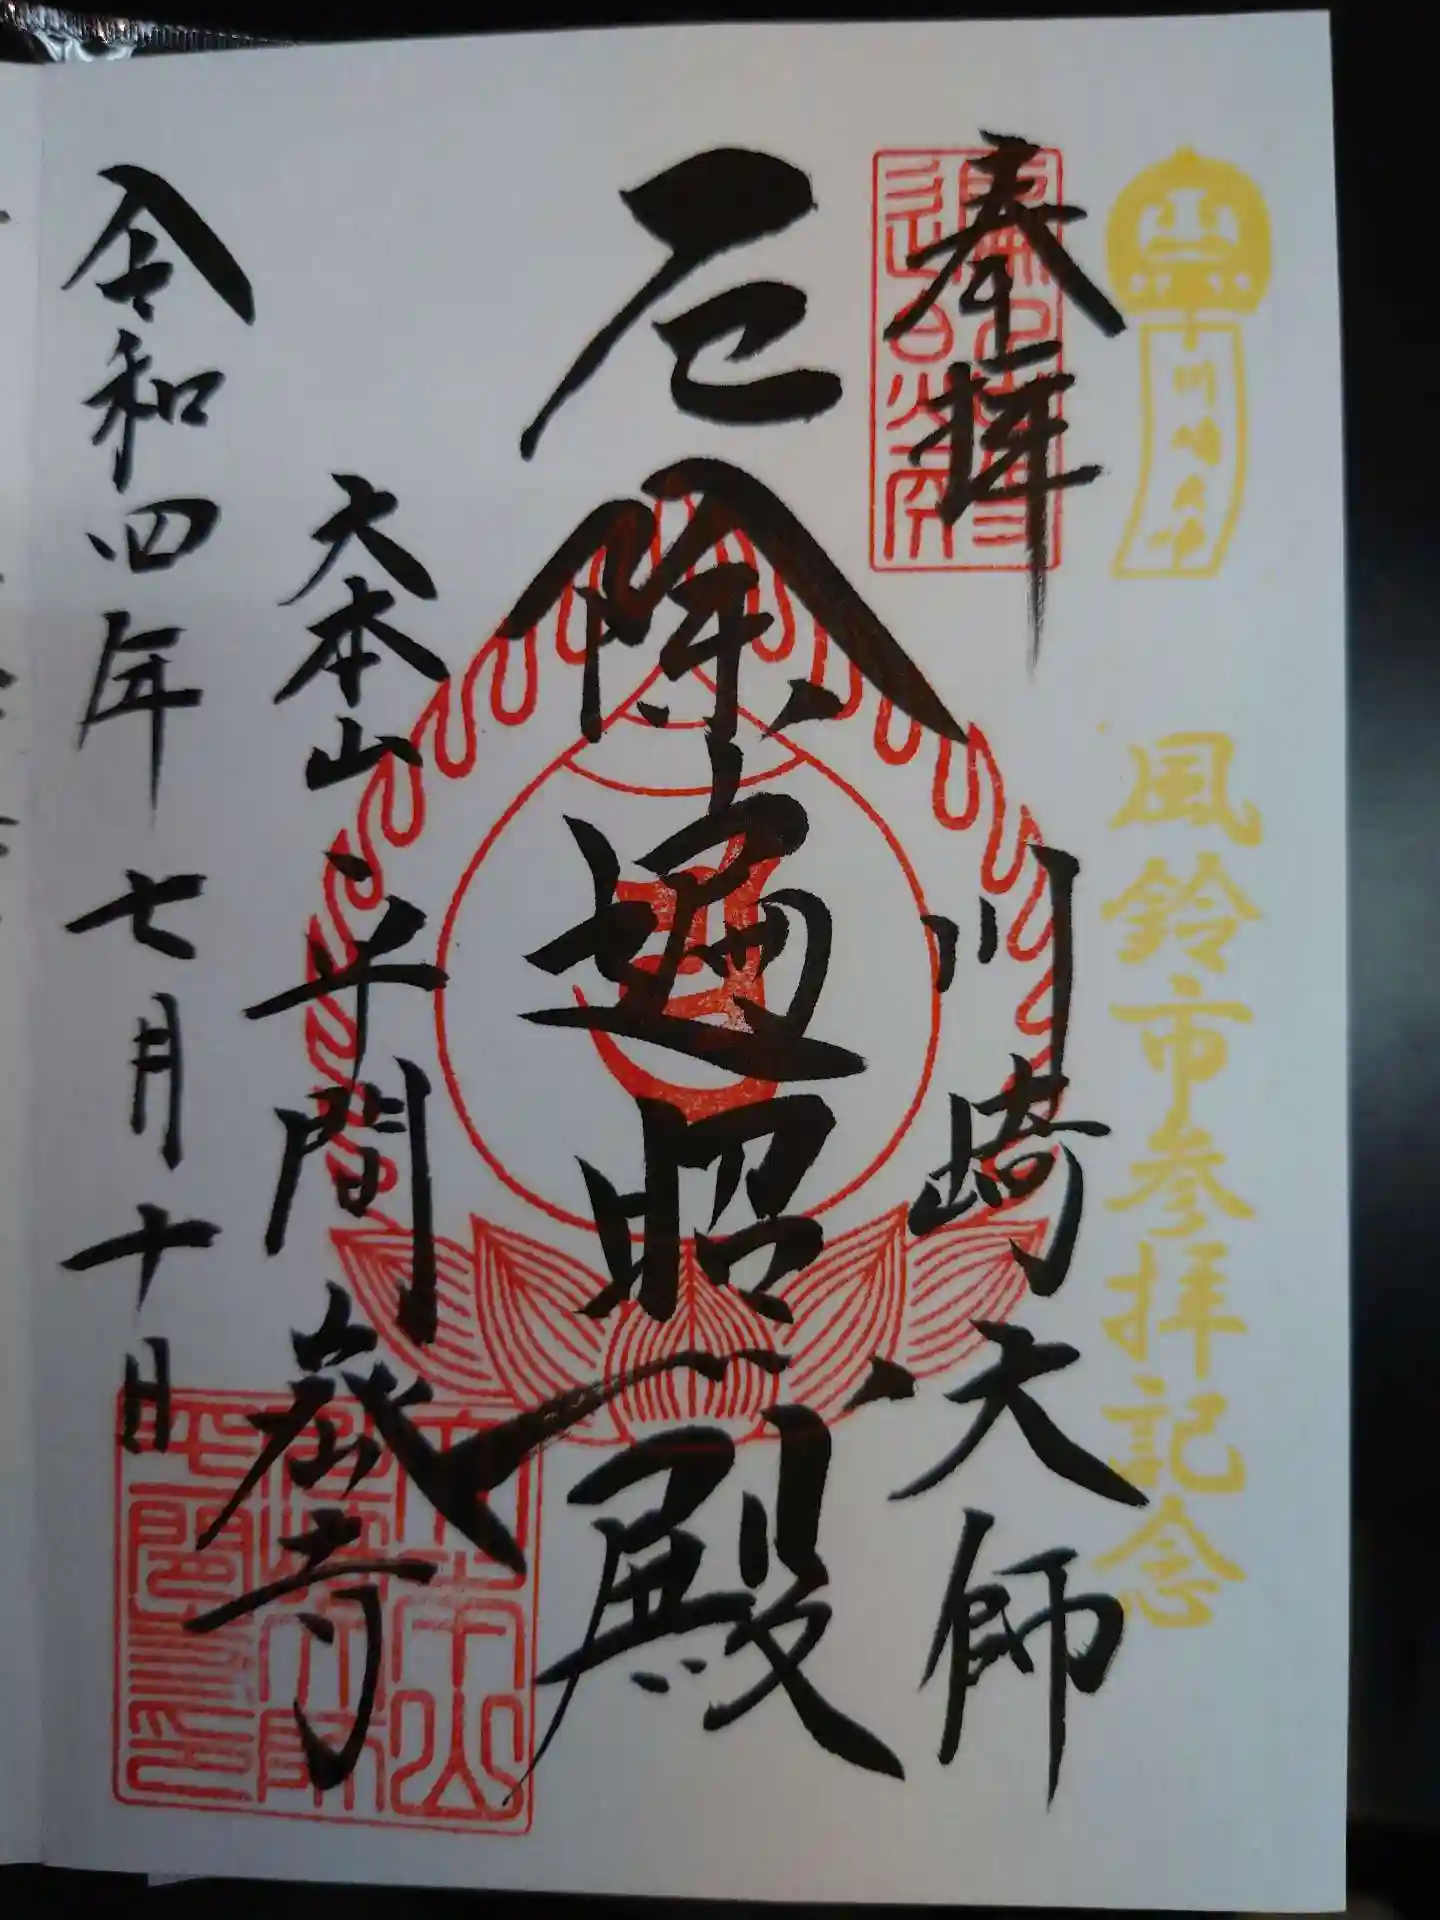 川崎大師
風鈴市参拝記念
奉拝
川崎大師
厄除遍照殿
大本山
平間寺
令和四年七月十日